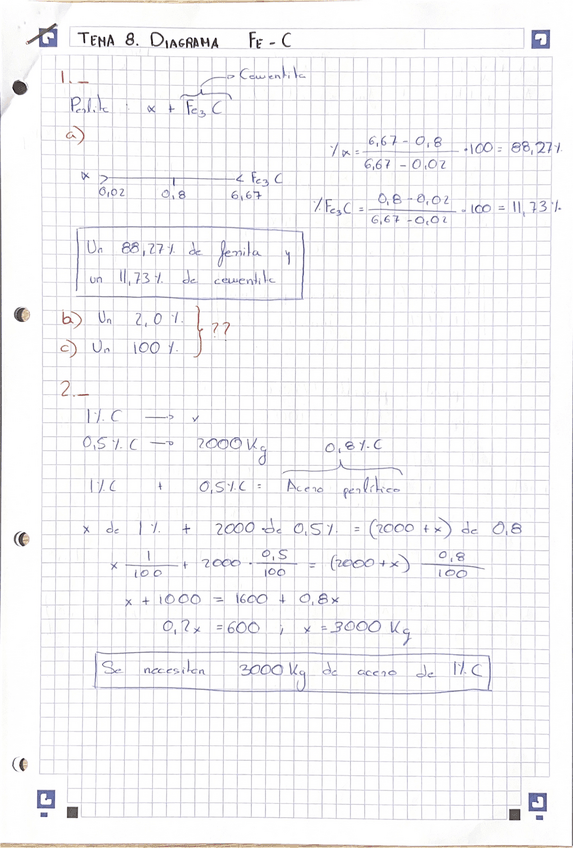 TEMA 8. DIAGRAMA FE-C
1._
→ Cementita
Perlita: α + Fe₃C
a)
%α = (6,67 - 0,8)/(6,67 - 0,02) · 100 = 88,27%
α > < Fe₃C
0,02 0,8 6,67
%Fe₃C = (0,8 - 0,02)/(6,67 - 0,02) · 100 = 11,73%
Un 88,27% de ferrita y
un 11,73% de cementita
b) Un 2,0%. } ??
c) Un 100%.
2._
1% C → x
0,5% C → 2000 Kg
0,8% C
1% C + 0,5% C = Acero perlítico
x de 1% + 2000 de 0,5% = (2000 + x) de 0,8
x 1/100 + 2000 · 0,5/100 = (2000 + x) 0,8/100
x + 1000 = 1600 + 0,8x
0,2x = 600 ; x = 3000 Kg
Se necesitan 3000 Kg de acero de 1% C